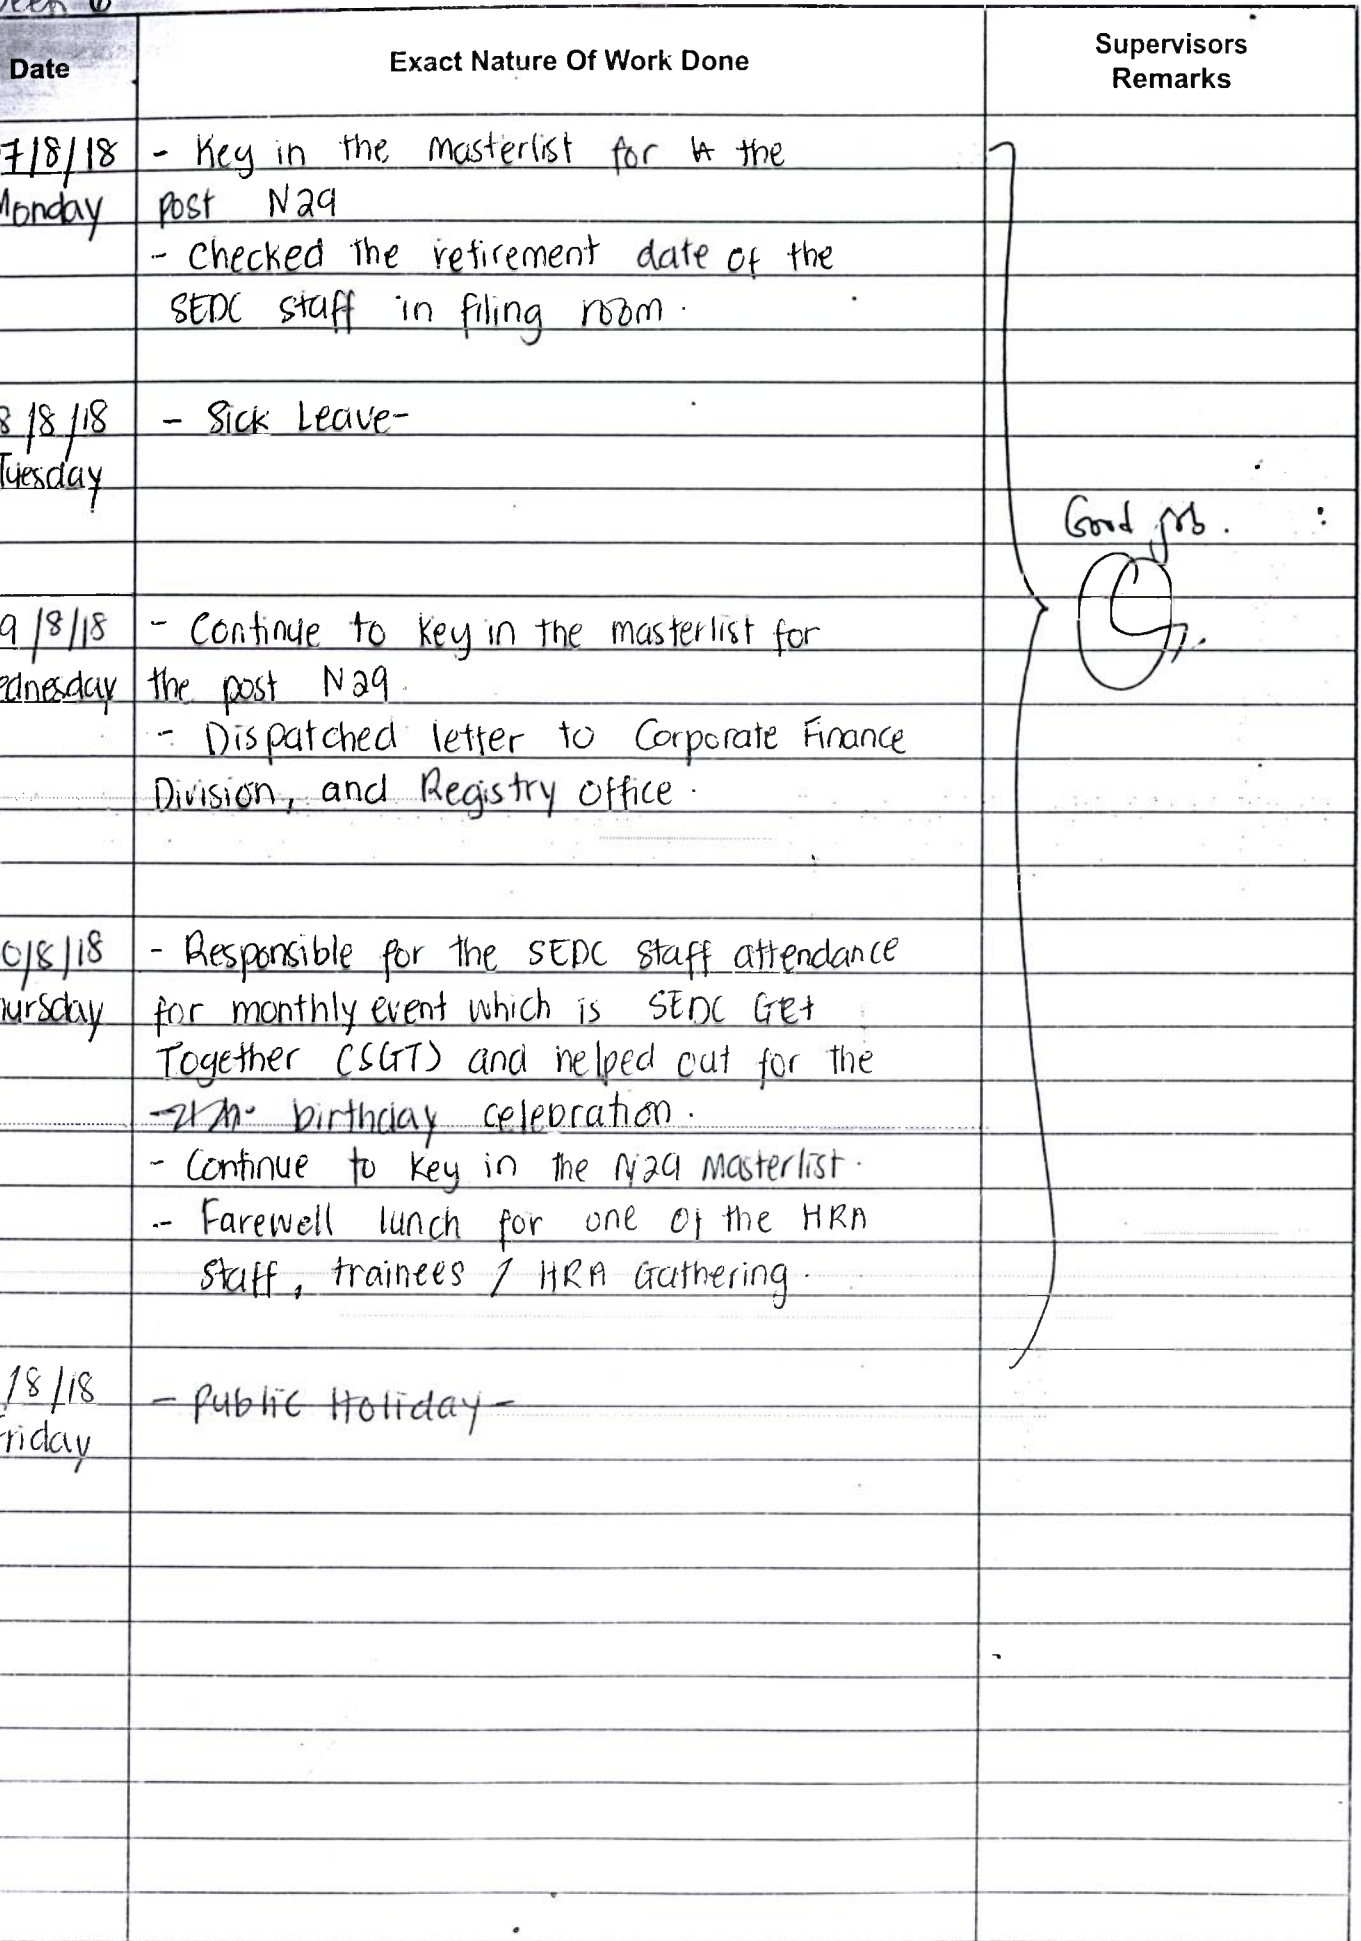 Date
Exact Nature Of Work Done
Supervisors
Remarks
7/8/18 - Key in the masterlist for the
Monday post N29
- Checked the retirement date of the
SEDC staff in filing room.
8/8/18 - Sick Leave-
Tuesday
Good job.
9/8/18 - Continue to key in the masterlist for
ednesday the post N29.
- Dispatched letter to Corporate Finance
Division, and Registry Office.
0/8/18 - Responsible for the SEDC staff attendance
hursday for monthly event which is SEDC Get
Together (SGT) and helped out for the
birthday celebration.
- Continue to key in the N29 Masterlist.
- Farewell lunch for one of the HRA
staff, trainees / HRA Gathering.
/8/18 - Public Holiday -
Friday